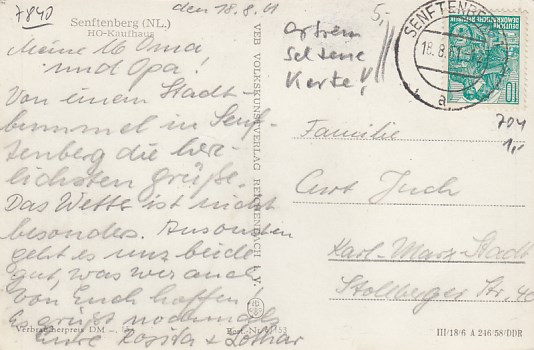 7840
Senftenberg (NL.)
HO-Kaufhaus
den 18.8.61
Meine l6 Oma
und Opa!
Von einem Stadt-
bummel in Senf-
tenberg die her-
lichsten grüße.
Das Wetts ist nicht
besonders. Ansonsten
geht es uns beide
gut, was wir auch
von Euch hoffen!
Es grüßt nochmals
Eure Rosita & Lothar
Verbraucherpreis DM
Best.-Nr.
VEB VOLKSKUNSTVERLAG REICHENBACH I. V.
5,-
extrem
seltene
Karte!
SENFTENBERG
18.8.61
a
DEUTSCHE
DEMOKRATISCHE REPUBLIK
10
704
1,-
Familie
Curt Juch
Karl-Marx-Stadt
Stollberger Str. 40
III/18/6 A 246/58/DDR